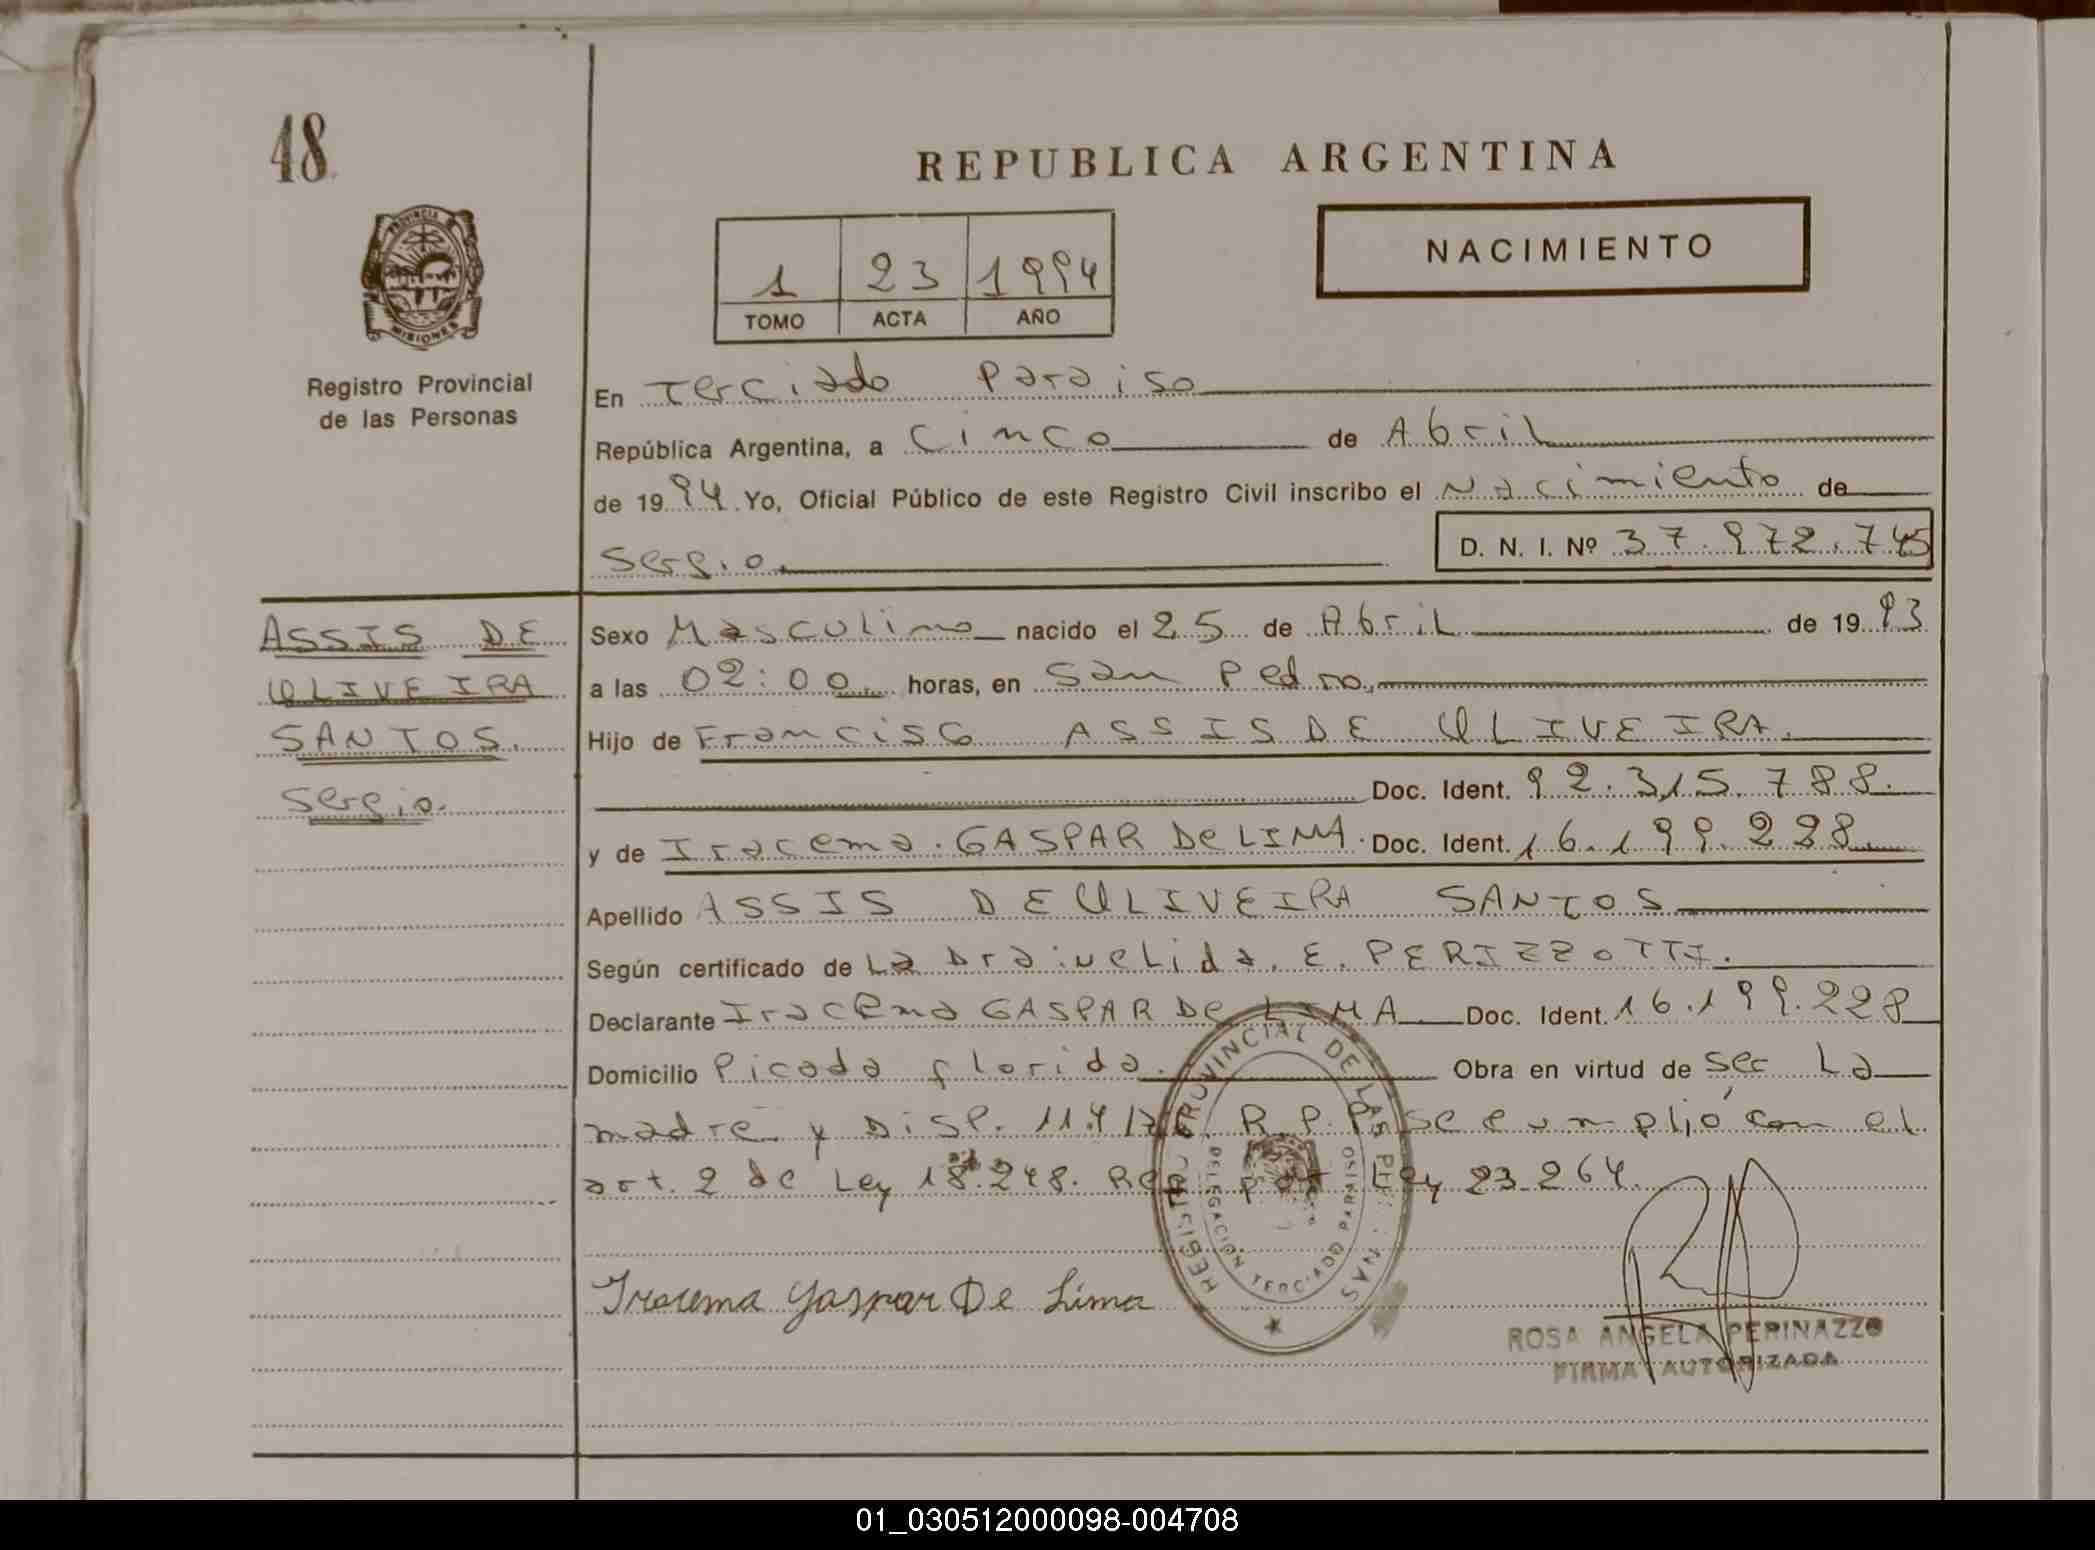 48
REPUBLICA ARGENTINA
PROVINCIA DE
MISIONES
NACIMIENTO
1 23 1994
TOMO ACTA AÑO
Registro Provincial
de las Personas
En Terciado Paraiso
República Argentina, a Cinco de Abril
de 1994 Yo, Oficial Público de este Registro Civil inscribo el Nacimiento de
Sergio. D. N. I. Nº 37.972.745
ASSIS DE
OLIVEIRA
SANTOS.
Sergio.
Sexo Masculino nacido el 25 de Abril de 1993
a las 02:00 horas, en San Pedro.
Hijo de Francisco ASSIS DE OLIVEIRA.
Doc. Ident. 92.315.788.
y de Iracema. GASPAR De LIMA. Doc. Ident. 16.199.228
Apellido ASSIS DE OLIVEIRA SANTOS
Según certificado de La Dra: Nelida. E. PERIZZOTTI.
Declarante Iracema GASPAR De LIMA Doc. Ident. 16.199.228
Domicilio Picada florida. Obra en virtud de ser La
madre y Disp. R.P.P. se cumplió con el
art. 2 de Ley 18.248. Ley 23.264.
REGISTRO PROVINCIAL DE LAS
DELEGACION TERCIADO PARAISO
Iracema Gaspar De Lima
ROSA ANGELA PERINAZZO
FIRMA AUTORIZADA
01_030512000098-004708